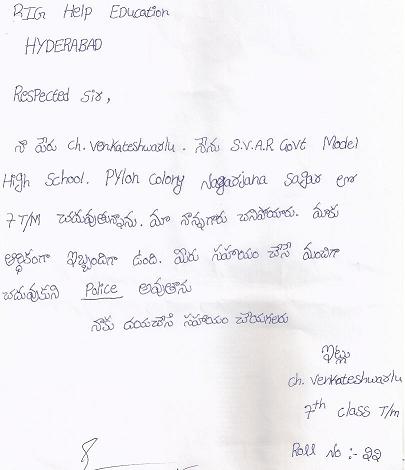 RIG Help Education
HYDERABAD
Respected Sir,
నా పేరు ch. venkateshwarlu. నేను S.V.A.R Govt Model
High School. PYlon Colony Nagarjana Sagar లో
7 T/M చదువుతున్నాను. మా నాన్నగారు చనిపోయారు. మాకు
ఆర్థికంగా ఇబ్బందిగా ఉంది. మీరు సహాయం చేసే మంచిగా
చదువుకుని Police అవుతాను
నాకు దయచేసి సహాయం చేయగలరు
ఇట్లు
ch. venkateshwarlu
7th class T/m
Roll No :-